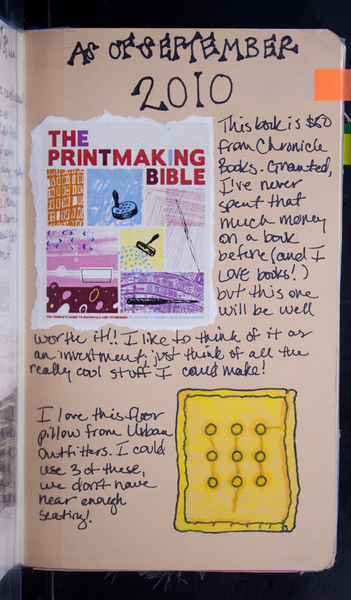 AS OF SEPTEMBER
2010
THE
PRINTMAKING
BIBLE
THE COMPLETE GUIDE TO MATERIALS AND TECHNIQUES
This book is $60
from Chronicle
Books. Granted,
I've never
spent that
much money
on a book
before (and I
LOVE books!)
but this one
will be well
worth it!! I like to think of it as
an investment, just think of all the
really cool stuff I could make!
I love this floor
pillow from Urban
Outfitters. I could
use 3 of these,
we don't have
near enough
seating!